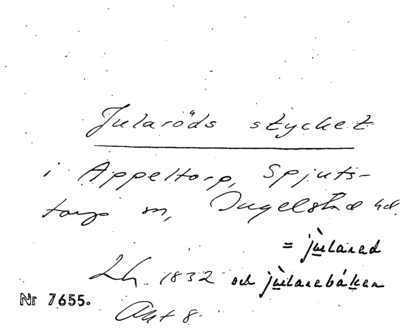 Jularöds stycket
i Äppeltorp, Spjuts-
torp sn, Ingelstad hd.
= jùlarad
Lh. 1832 och jùlarebáken
Akt 8.
Nr 7655.